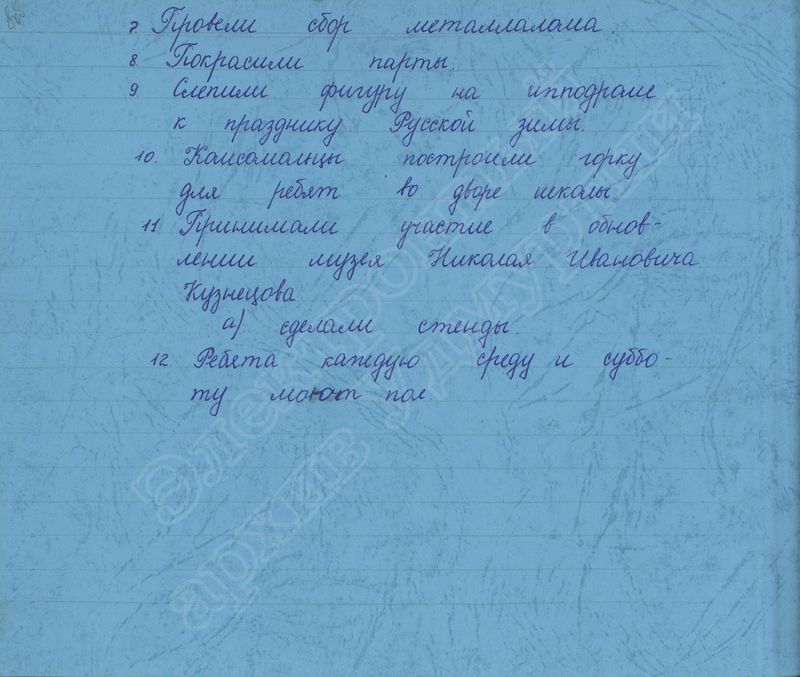 7 Провели сбор металлалома.
8 Покрасили парты.
9 Слепили фигуру на ипподроме
к празднику Русской зимы.
10. Комсомольцы построили горку
для ребят во дворе школы
11 Принимали участие в обнов-
лении музея Николая Ивановича
Кузнецова
а) сделали стенды.
12 Ребята каждую среду и суббо-
ту моют пол
Электронный
архив Удмуртии